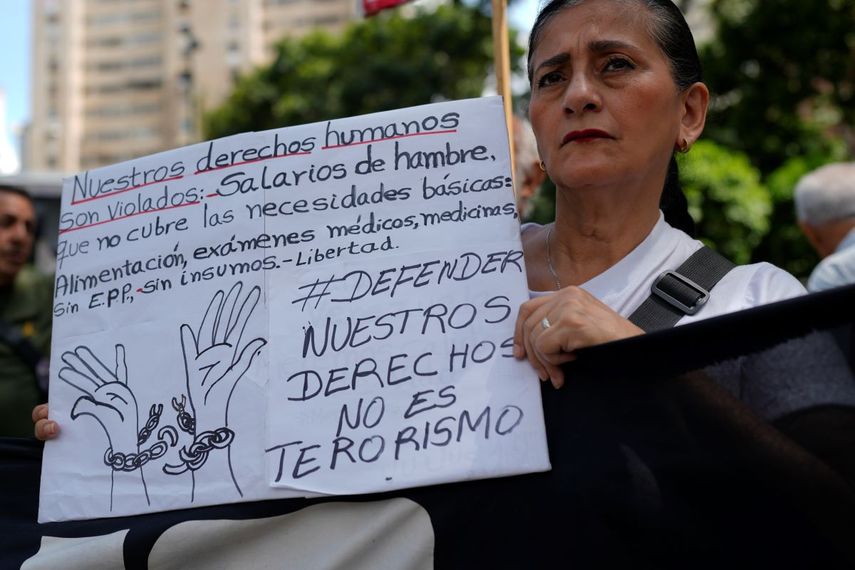 Nuestros derechos humanos
son violados:- Salarios de hambre,
que no cubre las necesidades básicas:
Alimentación, exámenes médicos, medicinas,
sin E.P.P., -sin insumos.-Libertad.
#DEFENDER
NUESTROS
DERECHOS
NO ES
TERORISMO